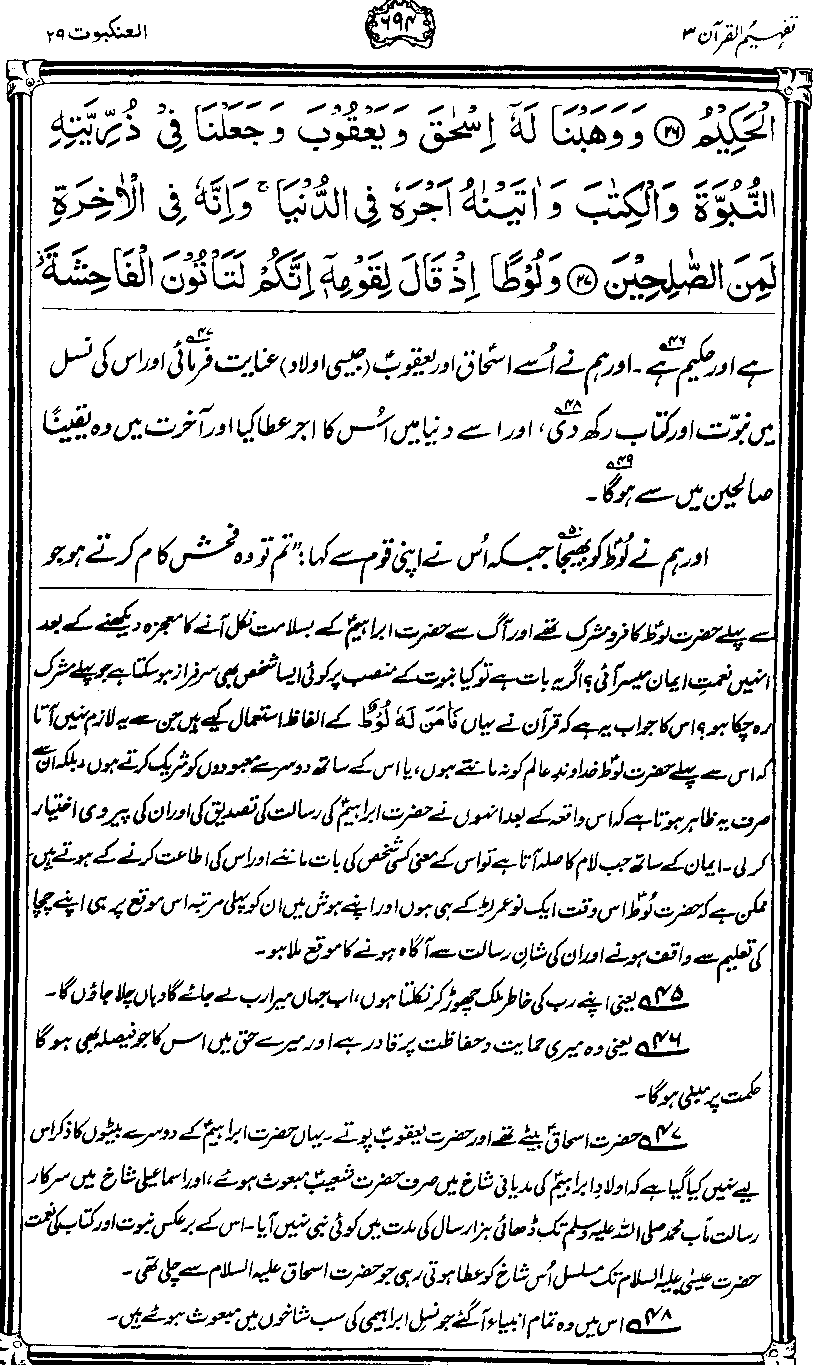 تفہیم القرآن ۳
۶۹۴
العنکبوت ۲۹
الْحَكِيْمُ ﴿۲۶﴾ وَوَهَبْنَا لَهٗٓ اِسْحٰقَ وَيَعْقُوْبَ وَجَعَلْنَا فِيْ ذُرِّيَّتِهِ
النُّبُوَّةَ وَالْكِتٰبَ وَاٰتَيْنٰهُ اَجْرَهٗ فِي الدُّنْيَا ۚ وَاِنَّهٗ فِي الْاٰخِرَةِ
لَمِنَ الصّٰلِحِيْنَ ﴿۲۷﴾ وَلُوْطًا اِذْ قَالَ لِقَوْمِهٖٓ اِنَّكُمْ لَتَاْتُوْنَ الْفَاحِشَةَ
ہے اور حکیم ہے۴۶۔ اور ہم نے اُسے اسحاق اور یعقوبؑ (جیسی اولاد) عنایت فرمائی۴۷ اور اس کی نسل
میں نبوّت اور کتاب رکھ دی۴۸، اور اسے دنیا میں اُس کا اجر عطا کیا اور آخرت میں وہ یقیناً
صالحین میں سے ہوگا۴۹۔
اور ہم نے لُوطؑ کو بھیجا۵۰ جبکہ اُس نے اپنی قوم سے کہا: ”تم تو وہ فحش کام کرتے ہو جو
سے پہلے حضرت لوطؑ کافر و مشرک تھے اور آگ سے حضرت ابراہیمؑ کے بسلامت نکل آنے کا معجزہ دیکھنے کے بعد
انہیں نعمتِ ایمان میسر آئی؟ اگر یہ بات ہے تو کیا نبوت کے منصب پر کوئی ایسا شخص بھی سرفراز ہو سکتا ہے جو پہلے مشرک
رہ چکا ہو؟ اس کا جواب یہ ہے کہ قرآن نے یہاں فَاٰمَنَ لَهٗ لُوْطٌ کے الفاظ استعمال کیے ہیں جن سے یہ لازم نہیں آتا
کہ اس سے پہلے حضرت لوطؑ خداوندِ عالم کو نہ مانتے ہوں، یا اس کے ساتھ دوسرے معبودوں کو شریک کرتے ہوں، بلکہ ان سے
صرف یہ ظاہر ہوتا ہے کہ اس واقعہ کے بعد انہوں نے حضرت ابراہیمؑ کی رسالت کی تصدیق کی اور ان کی پیروی اختیار
کر لی۔ ایمان کے ساتھ جب لام کا صلہ آتا ہے تو اس کے معنی کسی شخص کی بات ماننے اور اس کی اطاعت کرنے کے ہوتے ہیں
ممکن ہے کہ حضرت لُوطؑ اس وقت ایک نوعمر لڑکے ہی ہوں اور اپنے ہوش میں ان کو پہلی مرتبہ اس موقع پر ہی اپنے چچا
کی تعلیم سے واقف ہونے اور ان کی شانِ رسالت سے آگاہ ہونے کا موقع ملا ہو۔
۴۵ یعنی اپنے رب کی خاطر ملک چھوڑ کر نکلتا ہوں، اب جہاں میرا رب لے جائے گا وہاں چلا جاؤں گا۔
۴۶ یعنی وہ میری حمایت و حفاظت پر قادر ہے اور میرے حق میں اس کا جو فیصلہ بھی ہو گا
حکمت پر مبنی ہوگا۔
۴۷ حضرت اسحاقؑ بیٹے تھے اور حضرت یعقوبؑ پوتے۔ یہاں حضرت ابراہیمؑ کے دوسرے بیٹوں کا ذکر اس
لیے نہیں کیا گیا ہے کہ اولادِ ابراہیمؑ کی مدیانی شاخ میں صرف حضرت شعیبؑ مبعوث ہوئے، اور اسماعیلی شاخ میں سرکار
رسالت مآب محمد صلی اللہ علیہ وسلم تک ڈھائی ہزار سال کی مدت میں کوئی نبی نہیں آیا۔ اس کے برعکس نبوت اور کتاب کی نعمت
حضرت عیسیٰ علیہ السلام تک مسلسل اُس شاخ کو عطا ہوتی رہی جو حضرت اسحاق علیہ السلام سے چلی تھی۔
۴۸ اس میں وہ تمام انبیاء آ گئے جو نسل ابراہیمی کی سب شاخوں میں مبعوث ہوئے ہیں۔